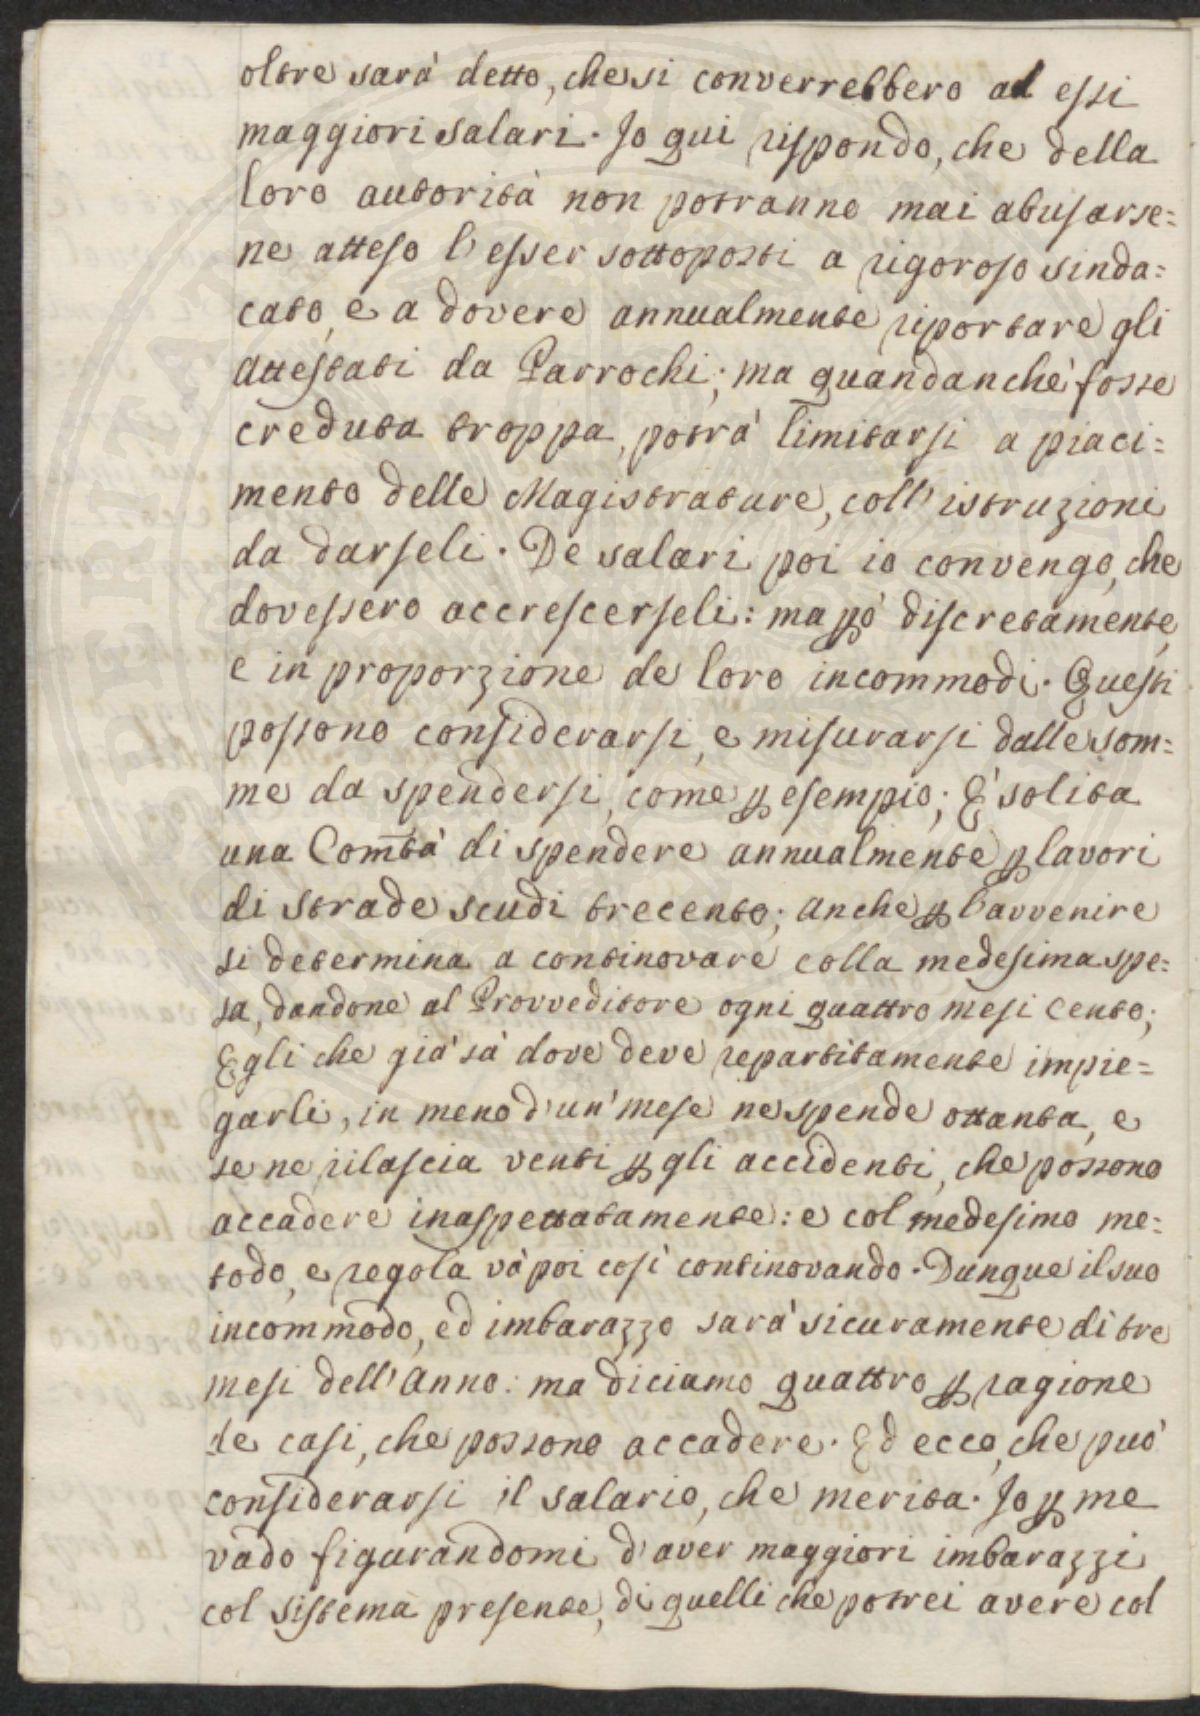 oltre sarà detto, che si converrebbero ad essi
maggiori salari. Io qui rispondo, che della
loro autorità non potranno mai abusarse=
ne atteso l'esser sottoposti a rigoroso sinda=
cato, e a dovere annualmente riportare gli
attestati da Parrochi; ma quandanche fosse
creduta troppa, potrà limitarsi a piaci=
mento delle Magistrature, coll'istruzioni
da darseli. De salari poi io convengo, che
dovessero accrescerseli: ma ꝑò discretamente,
e in proporzione de loro incommodi. Questi
possono considerarsi, e misurarsi dalle som=
me da spendersi, come ꝑ esempio; È solita
una Com̃tà di spendere annualmente ꝑ lavori
di strade scudi trecento; anche ꝑ l'avvenire
si determina a continovare colla medesima spe=
sa, dandone al Provveditore ogni quattro mesi cento;
Egli che già sà dove deve repartitamente impie=
garli, in meno d'un'mese ne spende ottanta, e
se ne rilascia venti ꝑ gli accidenti, che possono
accadere inaspettatamente: e col medesimo me=
todo, e regola và poi così continovando. Dunque il suo
incommodo, ed imbarazzo sarà sicuramente di tre
mesi dell'anno: ma diciamo quattro ꝑ ragione
de casi, che possono accadere. Ed ecco, che può
considerarsi il salario, che merita. Io ꝑ me
vado figurandomi d'aver maggiori imbarazzi
col sistema presente, di quelli che potrei avere col